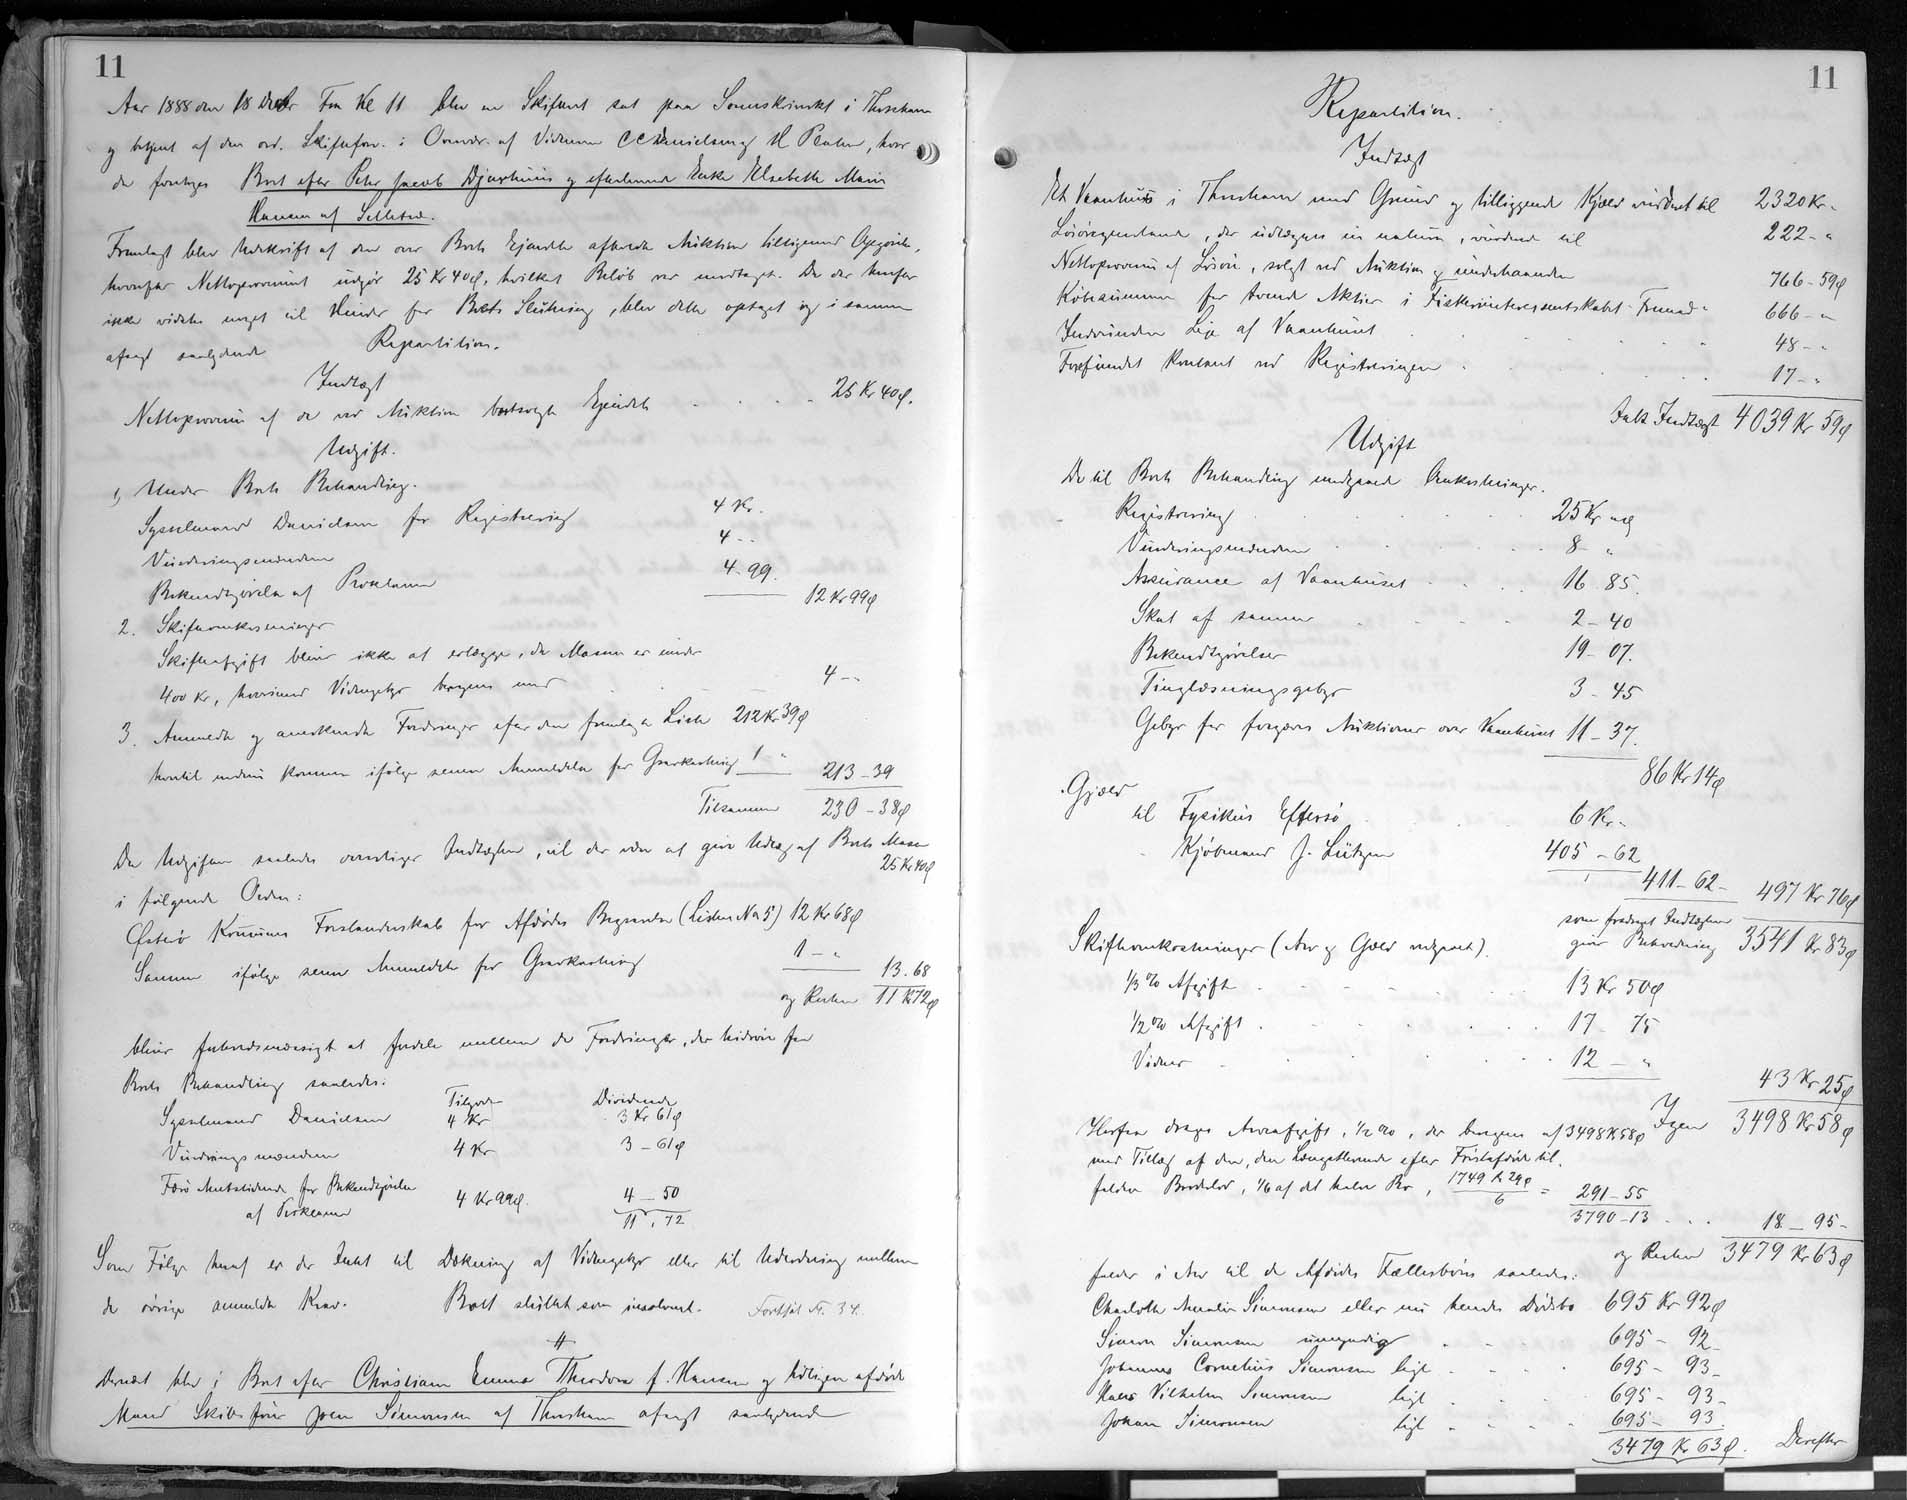 11
Aar 1888 den 18 Decbr Fm Kl 11 blev en Skifteret sat paa Sorenskriverkt i Thorshavn
og betjent af den ord. Skifteforv. i Overvær. af Vidnerne C C Danielsen og H Poulsen, hvor
da foretoges Boet efter Peter Jacob Djurhuus og efterlevende Enke Elsebeth Marie
Hansen af Selletræ.
Fremlagt blev Udskrift af den over Boets Ejendele afholdte Auktion tilligemed Opgørelse,
hvorefter Nettoprovenuet udgjør 25 Kr 40 Ø, hvilket Beløb var modtaget. Da der herefter
ikke vidstes noget til Hinder for Boets Slutning, blev dette optaget og i samme
afsagt saalydende Repartition.
Indtægt
Nettoprovenu af de ved Auktion bortsolgte Ejendele 25 Kr 40 Ø.
Udgift.
1, Under Boets Behandling.
Sysselmand Danielsen for Registrering 4 Kr.
Vurderingsmændene 4 - -
Bekendtgørelse af Proklama 4-99.
12 Kr 99 Ø
2. Skifteomkostninger
Skifteafgift bliver ikke at erlægge, da Massen er under
400 Kr, hvorimod Vidnegebyr beregnes med 4 - -
3. Anmeldte og anerkendte Fordringer efter den fremlagte Liste 212 Kr 39 Ø
hvortil endnu kommer ifølge senere Anmeldelse for Gravkastning 1 "
213-39
Tilsammen 230-38 Ø
Da Udgiften saaledes overstiger Indtægten, vil der være at give Udlæg af Boets Masse
25 Kr 40 Ø
i følgende Orden:
Østerø Kommunes Forstanderskab for Afdødes Begravelse (Listen No 5) 12 Kr 68 Ø
Samme ifølge senere Anmeldelse for Gravkastning 1 - "
13.68
og Resten 11 Kr 72 Ø
bliver forholdsmæssigt at fordele mellem de Fordringer, der hidrøre fra
Boets Behandling saaledes:
Tilgode Dividende
Sysselmand Danielsen 4 Kr 3 Kr 61 Ø
Vurderingsmændene 4 Kr 3-61 Ø
Færø Amtstidende for Bekendtgørelse
af Proklama 4 Kr 99 Ø. 4-50
11, 72
Som Følge heraf er der Intet til Dækning af Vidnegebyr eller til Udlodning mellem
de øvrige anmeldte Krav. Boet sluttet som insolvent. Fortsat N. 34.
Dernæst blev i Boet efter Christiane Emma Theodora f. Hansen og tidligere afdøde
Mand Skibsfører Joen Simonsen af Thorshavn afsagt saalydende
11
Repartition.
Indtægt
Et Vaanhus i Thorshavn med Grund og tilliggende Kjæld vurderet til 2320 Kr -
Løsøregjenstande, der udlægges in natura, vurderede til 222 - "
Nettoprovenu af Løsøre, solgt ved Auktion og underhaanden 766-59 Ø
Købesummen for tvende Aktier i Fiskeriinteressentskabet Fremad 666 - "
Indvunden Leje af Vaanhuset 48 - "
Forefundet Kontant ved Registreringen 17 - "
Ialt Indtægt 4039 Kr 59 Ø
Udgift
De til Boets Behandling medgaaede Omkostninger.
Registrering 25 Kr " Ø
Vurderingsmændene 8 - "
Assurance af Vaanhuset 16-85.
Skat af samme 2-40
Bekendtgørelser 19-07.
Tinglæsningsgebyr 3-45
Gebyr for forgæves Auktioner over Vaanhuset 11-37.
86 Kr 14 Ø
Gjæld
til Fysikus Effersø 6 Kr -
Kjøbmand J. Lützen 405-62
411-62- 497 Kr 76 Ø
som fradraget Indtægten
giver Beholdning 3541 Kr 83 Ø
Skifteomkostninger (Arv og Gæld vedgaaet).
1/3 % Afgift 13 Kr 50 Ø
1/2 % Afgift 17-75
Vidner 12 - "
43 Kr 25 Ø
Igen 3498 Kr 58 Ø
Herfra drages Arveafgift, 1/2 %, der beregnes af 3498 Kr 58 Ø
med Tillæg af den, den Længstlevende efter Førstafdøde til-
faldne Broderlod, 1/6 af det halve Bo, 1749 Kr 29 Ø / 6 = 291-55
3790-13 18-95-
og Resten 3479 Kr 63 Ø
falder i Arv til de Afdødes Fællesbørn saaledes:
Charlotte Amalie Simonsen eller nu hendes Dødsbo 695 Kr 92 Ø
Simon Simonsen umyndig 695-92
Johannes Cornelius Simonsen lige 695-93
Hans Vilhelm Simonsen lige 695-93
Johan Simonsen lige 695-93
3479 Kr 63 Ø. Derefter